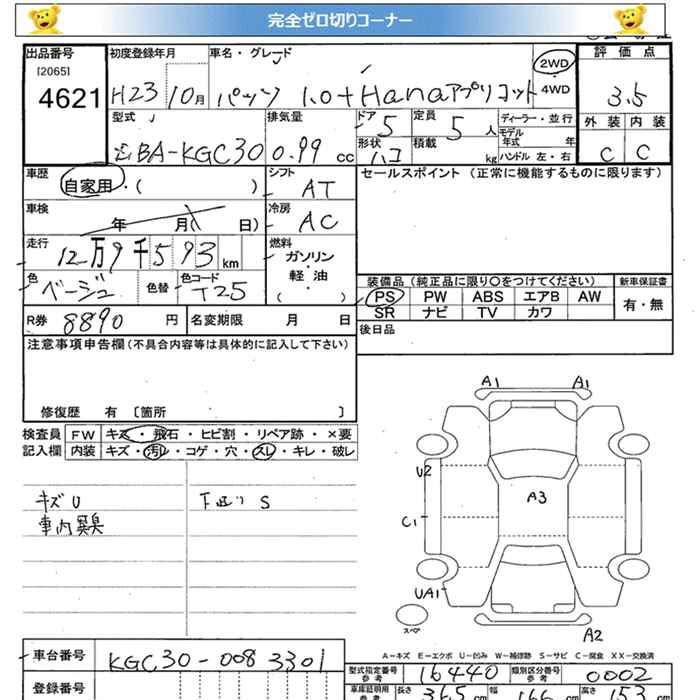 完全ゼロ切りコーナー
出品番号 初度登録年月 車名・グレード 2WD 評価点
[2065]
4621 H23 10月 パッソ 1.0+Hanaアプリコット ・4WD 3.5
型式 排気量 ドア 定員 ディーラー・並行 外装 内装
BA-KGC30 0.99 cc 5 5 人 モデル年式 年
形状 積載 ハコ kg ハンドル 左・右 C C
車歴 自家用・( ) シフト AT セールスポイント (正常に機能するものに限ります)
車検 年 月 日) 冷房 AC
走行 12万9千593 km 燃料 ガソリン
軽・油
( )
色 ベージュ 色替 色コード T25
装備品 (純正品に限り○をつけてください) 新車保証書
PS PW ABS エアB AW 有・無
SR ナビ TV カワ
R券 8890 円 名変期限 月 日 後日品
注意事項申告欄 (不具合内容等は具体的に記入して下さい)
修復歴 有 〔箇所 〕
検査員 FW キズ・飛石・ヒビ割・リペア跡・×要
記入欄 内装 キズ・汚レ・コゲ・穴・スレ・キレ・破レ
キズU 下回りS
車内異臭
A1 A1
U2
A3
C1
UA1
スペア
A2
A－キズ E－エクボ U－凹み W－補修跡 S－サビ C－腐食 XX－交換済
車台番号 KGC30-0083301
型式指定番号 参考 16440 類別区分番号 参考 0002
登録番号
車庫証明用 参考 長さ 365 cm 幅 166 cm 高さ 153 cm